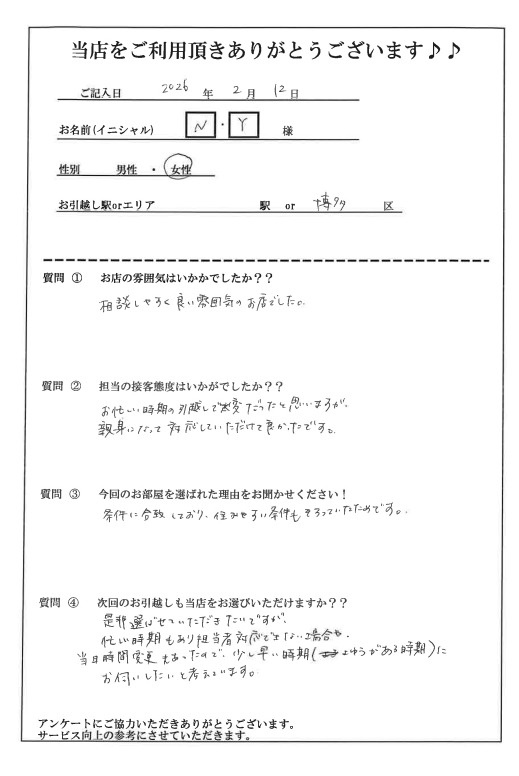 当店をご利用頂きありがとうございます♪♪
ご記入日 2026 年 2 月 12 日
お名前(イニシャル) N ・ Y 様
性別 男性 ・ 女性
お引越し駅orエリア 駅 or 博多 区
質問 ① お店の雰囲気はいかかでしたか??
相談しやすく良い雰囲気のお店でした。
質問 ② 担当の接客態度はいかがでしたか??
お忙しい時期の引越しで大変だったと思いますが、
親身になって対応していただけて良かったです。
質問 ③ 今回のお部屋を選ばれた理由をお聞かせください!
条件に合致しており、住みやすい条件もそろっていたためです。
質問 ④ 次回のお引越しも当店をお選びいただけますか??
是非選ばせていただきたいですが、
忙しい時期もあり担当者対応できない場合や、
当日時間変更もあったので、少し早い時期(よゆうがある時期)に
お付いしたいと考えています。
アンケートにご協力いただきありがとうございます。
サービス向上の参考にさせていただきます。